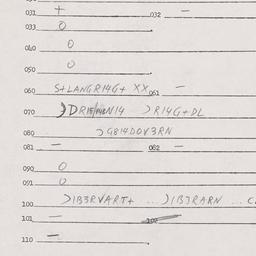 031 + 032 —
033 O
040 O
050 O
060 S+LANGR14G+ XX 061 —
070 R14G+DL
080 G814DOV3RN
081 — 082 —
090 O
091 O
100 )1B3RVART+ .. )1B3RARN .. C.
101 —
110 —